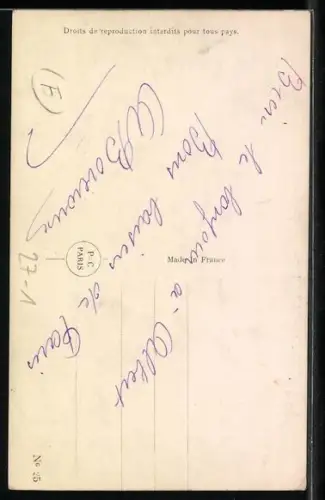 Droits de reproduction interdits pour tous pays.
(E)
Bien le bonjour à Albert
Bons baisers de Paris
P-C
PARIS
Made in France
27-1
No 25